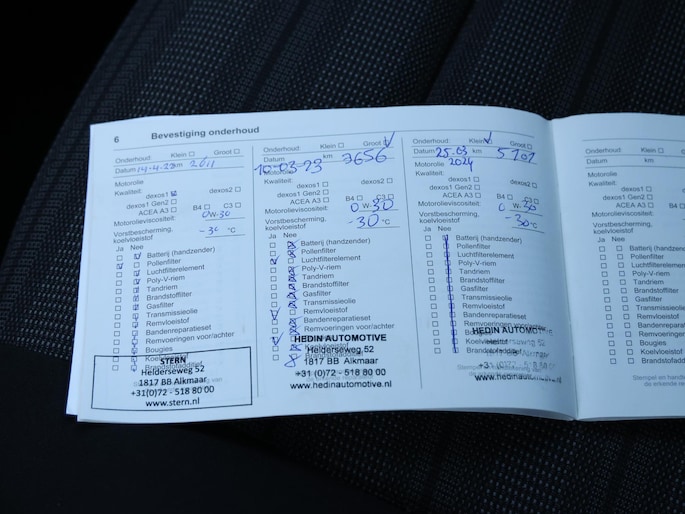 6 Bevestiging onderhoud
Onderhoud: Klein Groot
Datum 14-4-22 km 2611
Motorolie
Kwaliteit:
dexos1 dexos2
dexos1 Gen2
ACEA A3 B4 C3
Motorolieviscositeit: 0W-30
Vorstbescherming,
koelvloeistof -30 °C
Ja Nee
Batterij (handzender)
Pollenfilter
Luchtfilterelement
Poly-V-riem
Tandriem
Brandstoffilter
Gasfilter
Transmissieolie
Remvloeistof
Bandenreparatieset
Remvoeringen voor/achter
Bougies
Koelvloeistof
Brandstofadditief
STERN
Helderseweg 52
1817 BB Alkmaar
+31(0)72 - 518 80 00
www.stern.nl
Onderhoud: Klein Groot
Datum 10-03-23 km 3656
Motorolie
Kwaliteit:
dexos1 dexos2
dexos1 Gen2
ACEA A3 B4 C3
Motorolieviscositeit: 0W-30
Vorstbescherming,
koelvloeistof -30 °C
Ja Nee
Batterij (handzender)
Pollenfilter
Luchtfilterelement
Poly-V-riem
Tandriem
Brandstoffilter
Gasfilter
Transmissieolie
Remvloeistof
Bandenreparatieset
Remvoeringen voor/achter
HEDIN AUTOMOTIVE
Helderseweg 52
1817 BB Alkmaar
+31(0)72 - 518 80 00
www.hedinautomotive.nl
Onderhoud: Klein Groot
Datum 25.03 km 5101
2024
Motorolie
Kwaliteit:
dexos1 dexos2
dexos1 Gen2
ACEA A3 B4 C3
Motorolieviscositeit: 0W-30
Vorstbescherming,
koelvloeistof -30 °C
Ja Nee
Batterij (handzender)
Pollenfilter
Luchtfilterelement
Poly-V-riem
Tandriem
Brandstoffilter
Gasfilter
Transmissieolie
Remvloeistof
Bandenreparatieset
Remvoeringen voor/achter
Bougies
Koelvloeistof
Brandstofadditief
HEDIN AUTOMOTIVE
www.hedinautomotive.nl
Onderhoud: Klein
Datum km
Motorolie
Kwaliteit:
dexos1
dexos1 Gen2
ACEA A3
Motorolieviscositeit:
Vorstbescherming,
koelvloeistof
Ja Nee
Batterij (handzender)
Pollenfilter
Luchtfilterelement
Poly-V-riem
Tandriem
Brandstoffilter
Gasfilter
Transmissieolie
Remvloeistof
Bandenreparatieset
Remvoeringen
Bougies
Koelvloeistof
Brandstofadditief